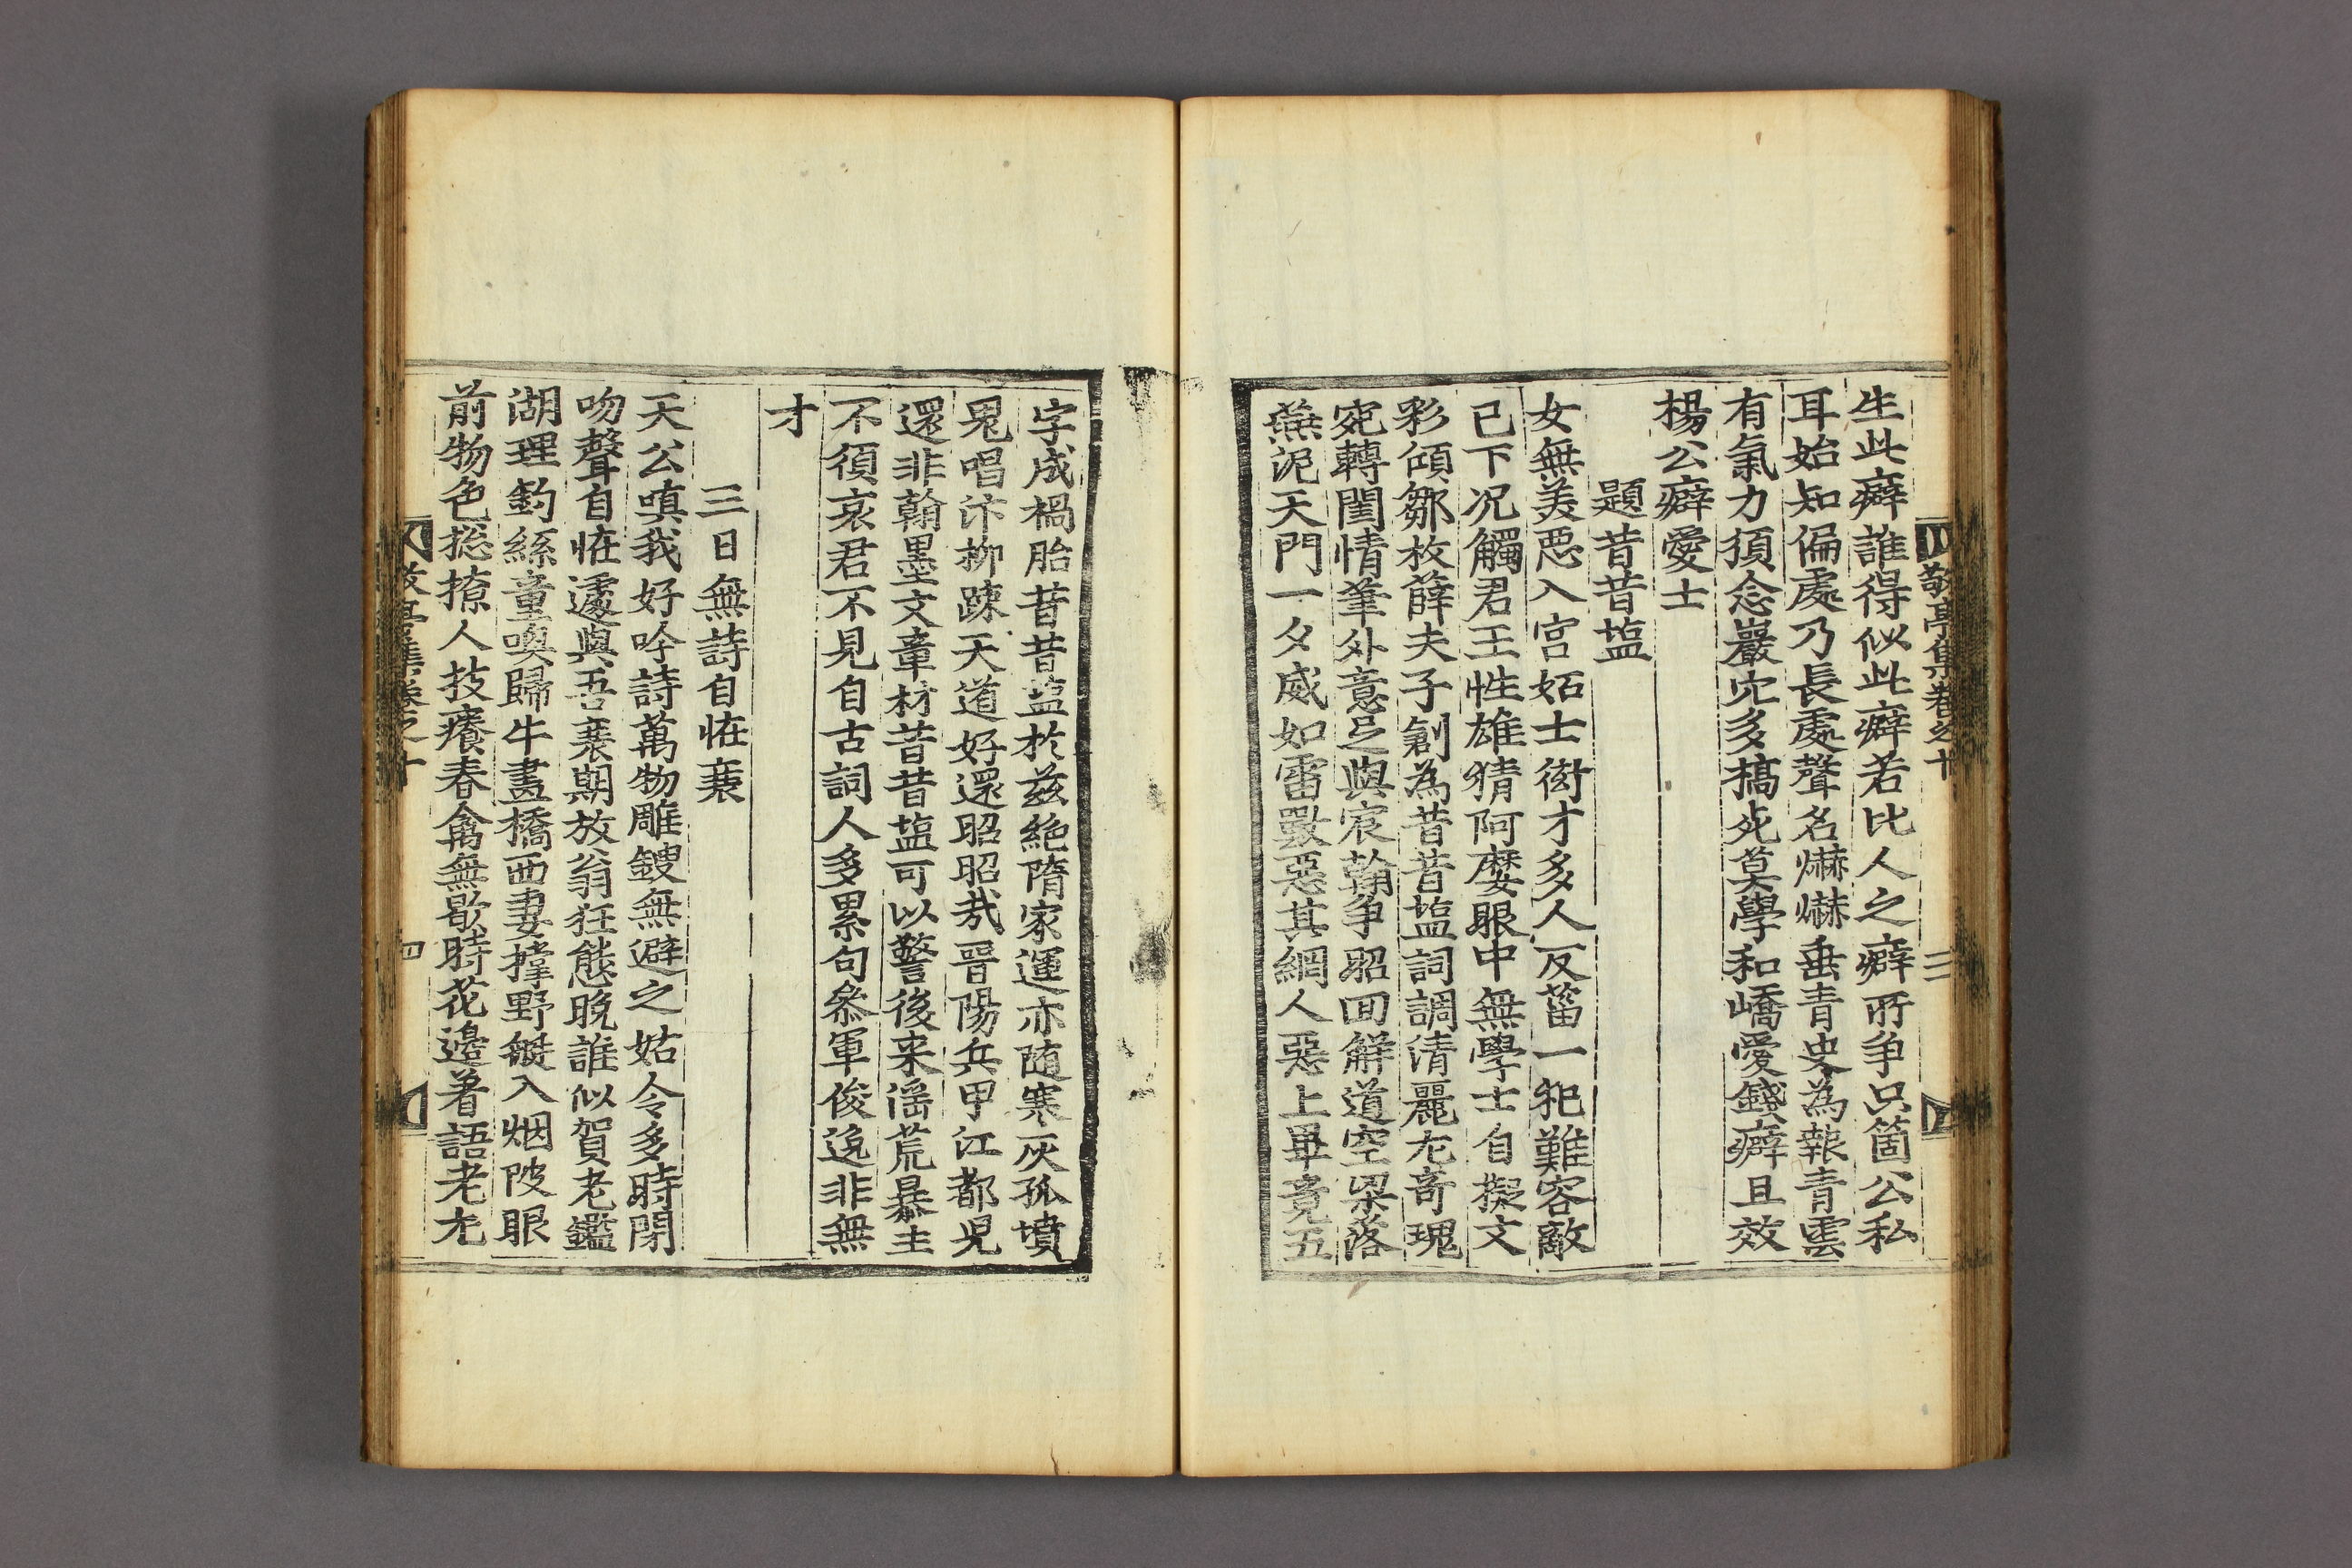 敬亭集卷之十
三
生此癖誰得似此癖若比人之癖所争只箇公私
耳始知偏處乃長處聲名爀爀垂青史爲報青雲
有氣力須念巖穴多槁死莫學和嶠愛錢癖且效
楊公癖愛士
題昔昔塩
女無美惡入宫妬士衒才多人反菑一犯難容敵
已下况觸君王性雄猜阿㜷眼中無學士自擬文
彩傾鄒枚薛夫子創為昔昔塩詞調清麗尤奇瑰
宛轉閨情筆外意足與宸翰争昭回觧道空梁落
燕泥天門一夕威如雷斁惡其網人惡上畢竟五
字成禍胎昔昔塩於玆絶隋家運亦随寒灰孤墳
鬼唱汴柳踈天道好還昭昭㦲晉陽兵甲江都兒
還非翰墨文章材昔昔塩可以警後来滛荒暴主
不須哀君不見自古詞人多累句叅軍俊逸非無
才
三日無詩自恠衰
天公嗔我好吟詩萬物雕鎪無避之姑令多時閉
吻聲自恠遽與吾衰期放翁狂態晩誰似賀老鑑
湖理釣絲童喚歸牛畫橋西妻撑野艇入烟陂眼
前物色揔撩人技癢春禽無歇時花邊着語老尤
敬亭集卷之十
四